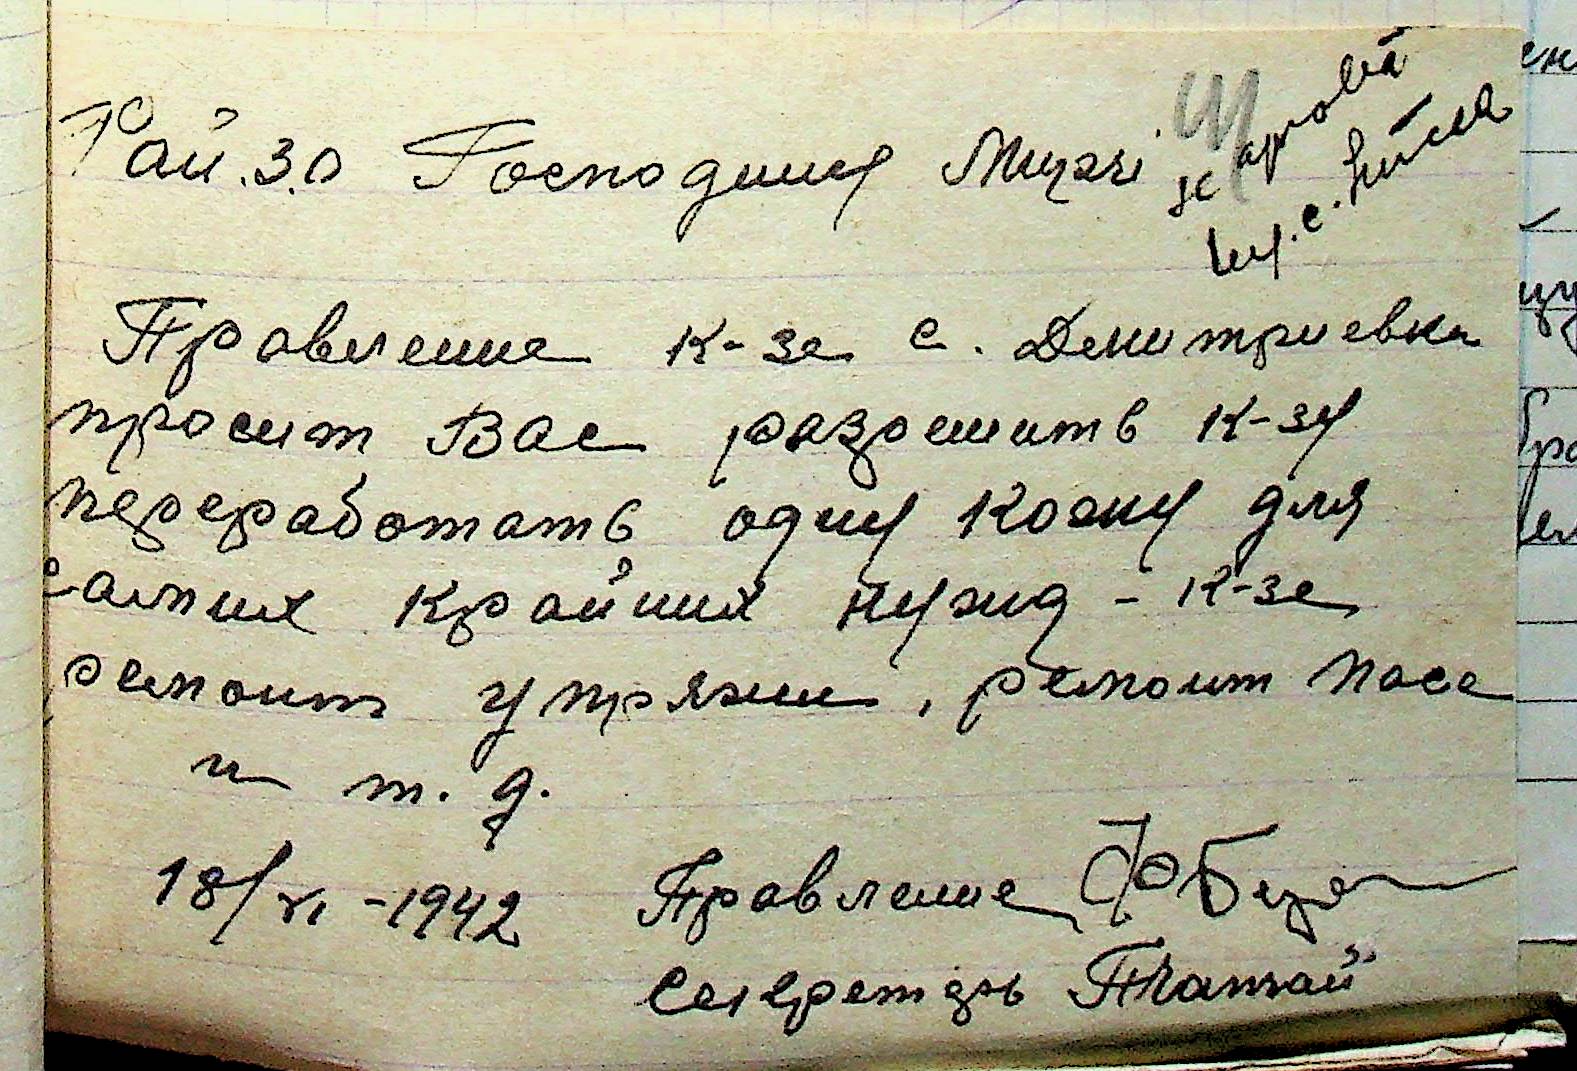 Рай.З.О Господину
Правление к-за с. Дмитриевка
просит Вас разрешить к-зу
переработать одну кожу для
самых крайних нужд - к-за
ремонт упряжи, ремонт паса
и т. д.
18/XI -1942 Правление
Секретарь